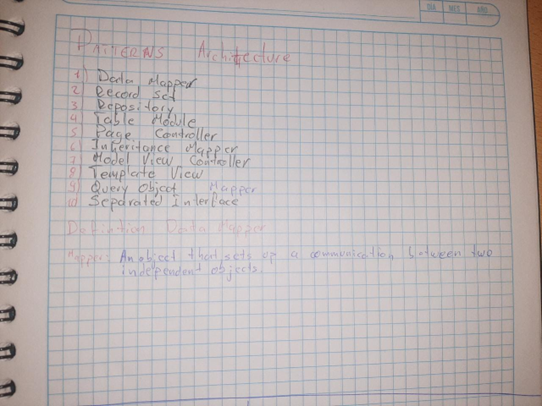 DIA MES AÑO
PATTERNS Architecture
1) Data Mapper
2 Record Set
3 Repository
4 Table Module
5 Page Controller
6) Inheritance Mapper
7) Model View Controller
8) Template View
9) Query Object Mapper
10) Separated Interface
Definition Data Mapper
Mapper: An object that sets op a communication between two
independent objects.